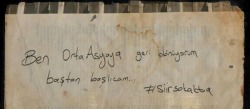 Ben Orta Asyaya geri dönüyorum
baştan başlıcam..
#Siirsokakta